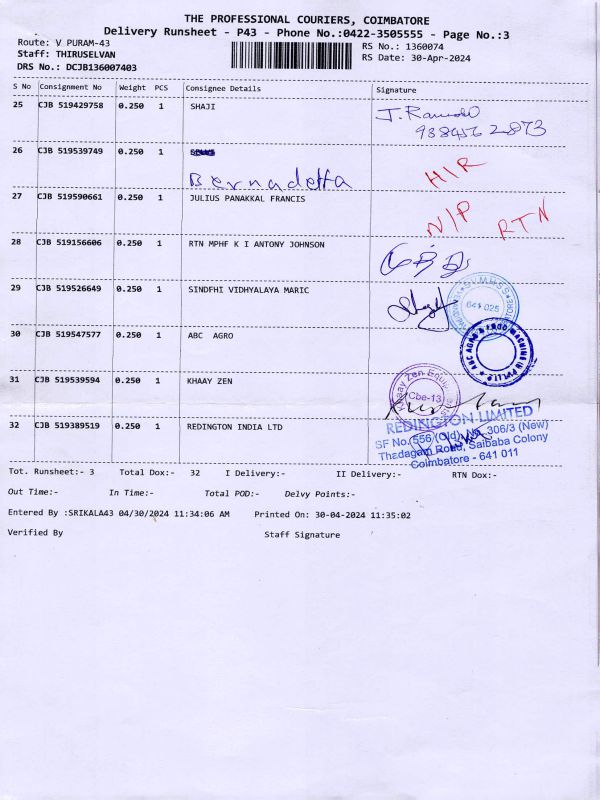 THE PROFESSIONAL COURIERS, COIMBATORE
Delivery Runsheet - P43 - Phone No.:0422-3505555 - Page No.:3
Route: V PURAM-43
RS No.: 1360074
Staff: THIRUSELVAN
RS Date: 30-Apr-2024
DRS No.: DCJB136007403
S No Consignment No Weight PCS Consignee Details Signature
25 CJB 519429758 0.250 1 SHAJI
26 CJB 519539749 0.250 1
Bernadetta
27 CJB 519590661 0.250 1 JULIUS PANAKKAL FRANCIS
N/P RTN
28 CJB 519156606 0.250 1 RTN MPHF K I ANTONY JOHNSON
29 CJB 519526649 0.250 1 SINDFHI VIDHYALAYA MARIC
641 025
30 CJB 519547577 0.250 1 ABC AGRO
31 CJB 519539594 0.250 1 KHAAY ZEN
Khaay Zen
Cbe-13
32 CJB 519389519 0.250 1 REDINGTON INDIA LTD
REDINGTON LIMITED
SF No. 556/(Old), No. 306/3 (New)
Thadagam Road, Saibaba Colony
Coimbatore - 641 011
Tot. Runsheet:- 3 Total Dox:- 32 I Delivery:- II Delivery:- RTN Dox:-
Out Time:- In Time:- Total POD:- Delvy Points:-
Entered By :SRIKALA43 04/30/2024 11:34:06 AM Printed On: 30-04-2024 11:35:02
Verified By Staff Signature